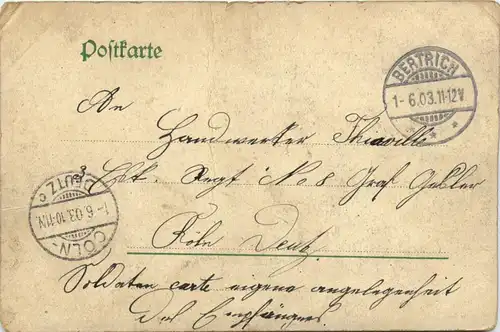 Postkarte
BERTRICH
1-6.03.11-12V
An
Handwerker Thiaville
3 Esk. Regt No 8 Graf Geßler
Köln Deutz
DEUTZ c
1-6.03.10-11N.
CÖLN-
Soldaten carte eigene angelegenheit
des Empfängers